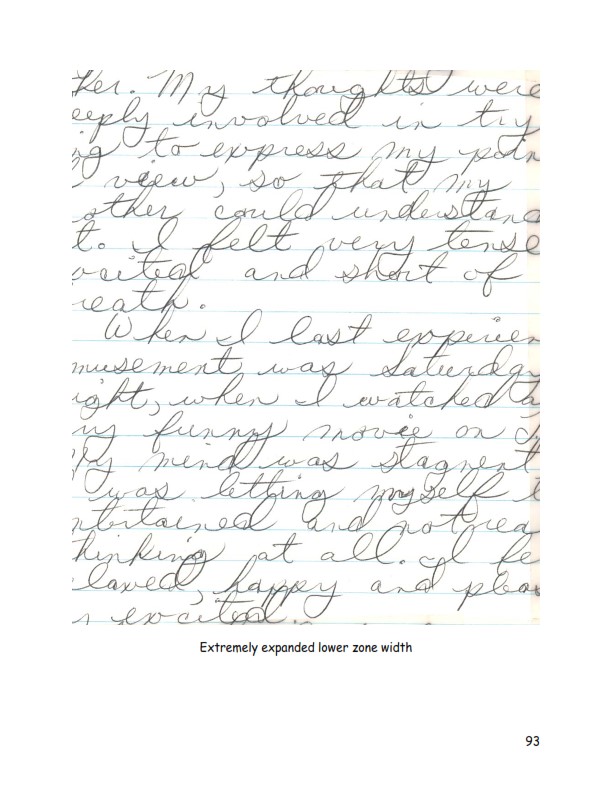 her. My thoughts were
eeply involved in try
ng to express my poin
view, so that my
other could understand
t. I felt very tense
xcited and short of
reath.
When I last experien
musement was Saturday
ight, when I watched a
ny funny movie on
My mind was stagnent
I was letting myself
ntertained and not rea
hinking at all. I fe
laxed, happy and pleas
s excited.
Extremely expanded lower zone width
93